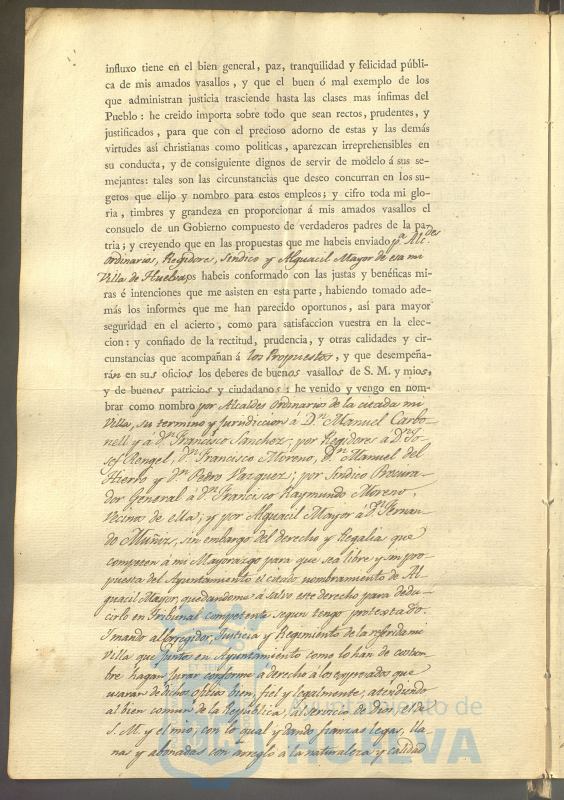 influxo tiene en el bien general, paz, tranquilidad y felicidad públi-
ca de mis amados vasallos, y que el buen ó mal exemplo de los
que administran justicia trasciende hasta las clases mas ínfimas del
Pueblo: he creido importa sobre todo que sean rectos, prudentes, y
justificados, para que con el precioso adorno de estas y las demás
virtudes así christianas como politicas, aparezcan irreprehensibles en
su conducta, y de consiguiente dignos de servir de modelo á sus se-
mejantes: tales son las circunstancias que deseo concurran en los su-
getos que elijo y nombro para estos empleos; y cifro toda mi glo-
ria, timbres y grandeza en proporcionar á mis amados vasallos el
consuelo de un Gobierno compuesto de verdaderos padres de la pa-
tria; y creyendo que en las propuestas que me habeis enviado pª Alcdes
ordinarios, Regidores, Sindico y Alguacil Mayor de esa mi
Villa de Huelva, os habeis conformado con las justas y benéficas mi-
ras é intenciones que me asisten en esta parte, habiendo tomado ade-
más los informes que me han parecido oportunos, así para mayor
seguridad en el acierto, como para satisfaccion vuestra en la elec-
cion: y confiado de la rectitud, prudencia, y otras calidades y cir-
cunstancias que acompañan á los Propuestos, y que desempeña-
rán en sus oficios los deberes de buenos vasallos de S. M. y mios,
y de buenos patricios y ciudadanos: he venido y vengo en nom-
brar como nombro por Alcaldes Ordinarios de la citada mi
Villa, su termino y jurisdiccion á Dn. Manuel Carbo-
nell y á Dn. Francisco Sanchez, por Regidores á Dn. Jo-
sef Rengel, Dn. Francisco Moreno, Dn. Manuel del
Hierro y Dn. Pedro Vazquez; por Sindico Procura-
dor General á Dn. Francisco Raymundo Moreno,
Vecinos de ella; y por Alguacil Mayor á Dn. Fernan-
do Muñiz, sin embargo del derecho y Regalia que
competen á mi Mayorazgo para que sea libre y sin pro-
puesta del Ayuntamiento el citado nombramiento de Al-
guacil Mayor, quedandome á salvo este derecho para dedu-
cirlo en Tribunal competente segun tengo protextado.
I mando al Corregidor, Justicia y Regimiento de la referida mi
Villa que juntos en Ayuntamiento como lo han de costum-
bre hagan jurar conforme á derecho á los expresados que
usaran de dichos oficios bien, fiel y legalmente, atendiendo
al bien comun de la Republica, al servicio de Dios, el de
S. M. y el mio; con lo qual y dando fianzas legas, lla-
nas y abonadas con arreglo á la naturaleza y calidad
Ayuntamiento de
HUELVA